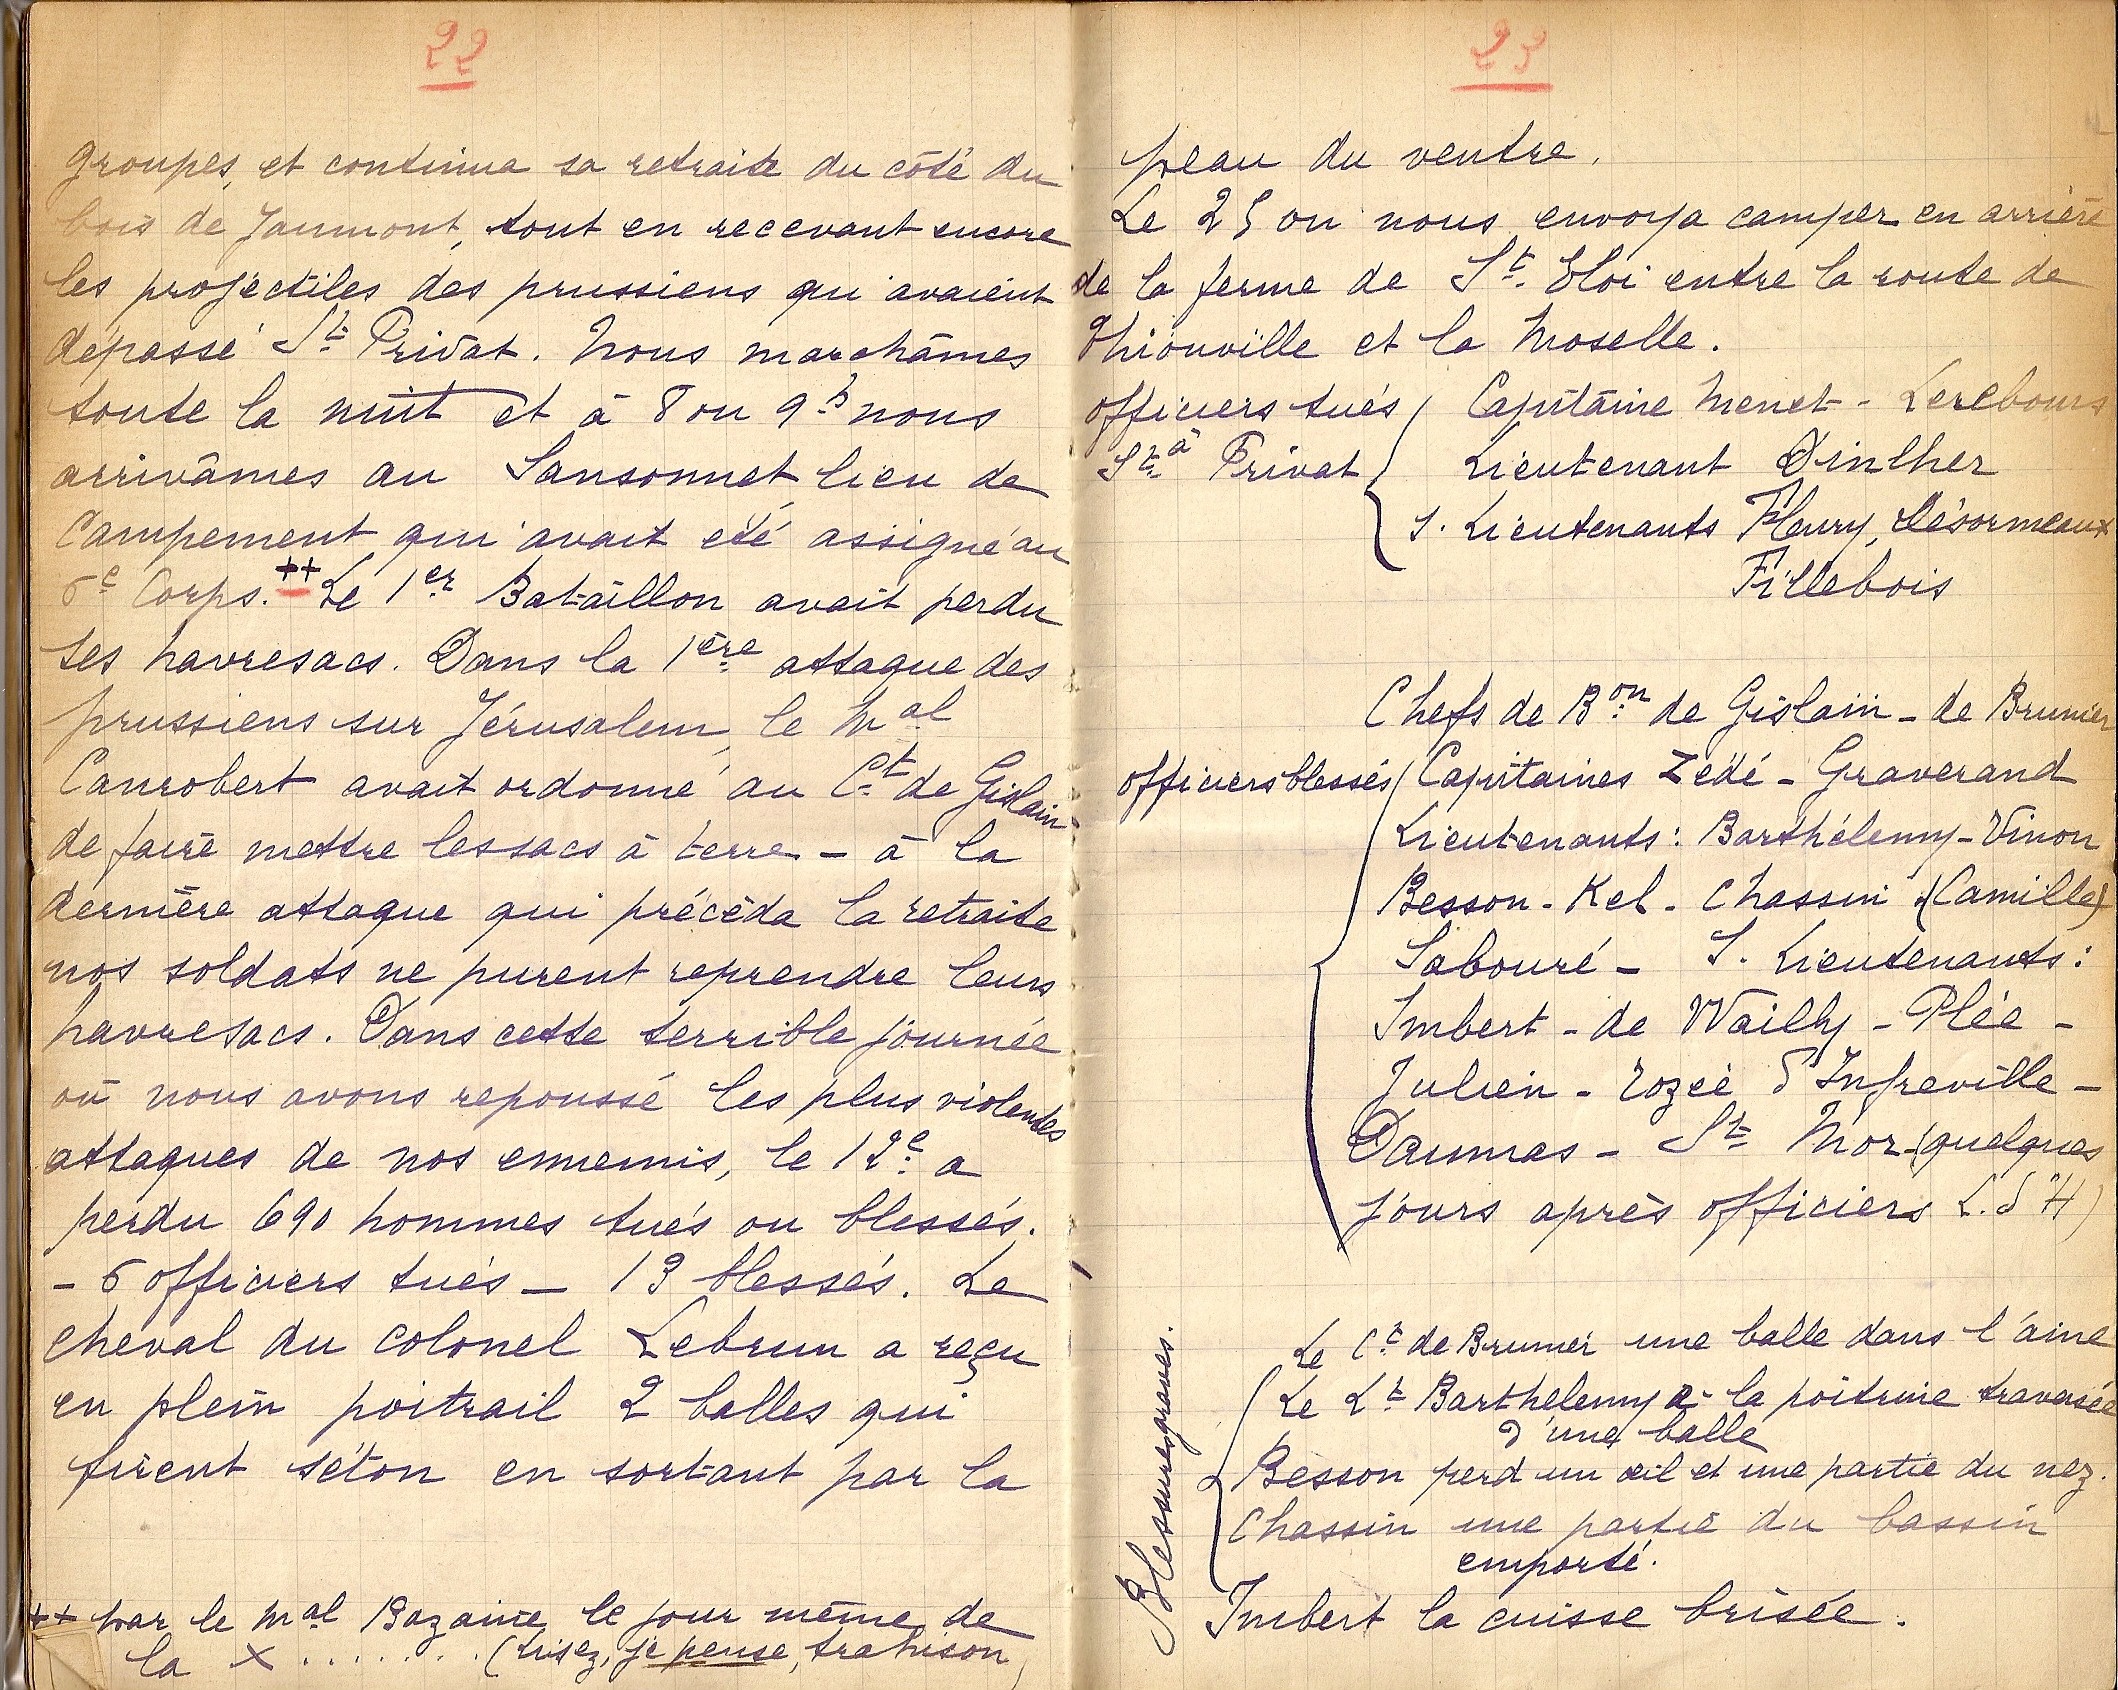 22
groupes, et continua sa retraite du côté du
bois de Jaumont, tout en recevant encore
les projectiles des prussiens qui avaient
dépassé St Privat. Nous marchâmes
toute la nuit et à 8 ou 9h nous
arrivâmes au Sansonnet lieu de
Campement qui avait été assigné au
6e Corps.++ Le 1er Bataillon avait perdu
ses havresacs. Dans la 1ère attaque des
prussiens sur Jérusalem, le Mal
Canrobert avait ordonné au Ct de Gislain
de faire mettre les sacs à terre - à la
dernière attaque qui précéda la retraite
nos soldats ne purent reprendre leurs
havresacs. Dans cette terrible journée
où nous avons repoussé les plus violentes
attaques de nos ennemis, le 12e a
perdu 690 hommes tués ou blessés.
- 6 officiers tués - 13 blessés. Le
cheval du colonel Lebrun a reçu
en plein poitrail 2 balles qui
firent séton en sortant par la
++ par le Mal Bazaine le jour même de
la X ........ (lisez, je pense, trahison)
23
peau du ventre.
Le 25 on nous envoya camper en arrière
de la ferme de St. Eloi entre la route de
Thionville et la Moselle.
officiers tués Capitaine Menet - Lerebours
à St Privat Lieutenant Dinlher
S. Lieutenants Fleury, Désormeaux
Fillebois
Chefs de Bon de Gislain - de Brunier
officiers blessés Capitaines Zédé - Graverand
Lieutenants : Barthélemy - Vinon
Besson - Kel - Chassin (Camille)
Sabouré - S. Lieutenants :
Imbert - de Wailly - Plée -
Julien - Rozée d'Infreville -
Daumas - St Mor (quelques
jours après officiers L. d'H)
Blessures graves.
Le Ct de Brunier une balle dans l'aine
Le Lt Barthélemy a la poitrine traversée
d'une balle
Besson perd un œil et une partie du nez.
Chassin une partie du bassin
emporté.
Imbert la cuisse brisée.